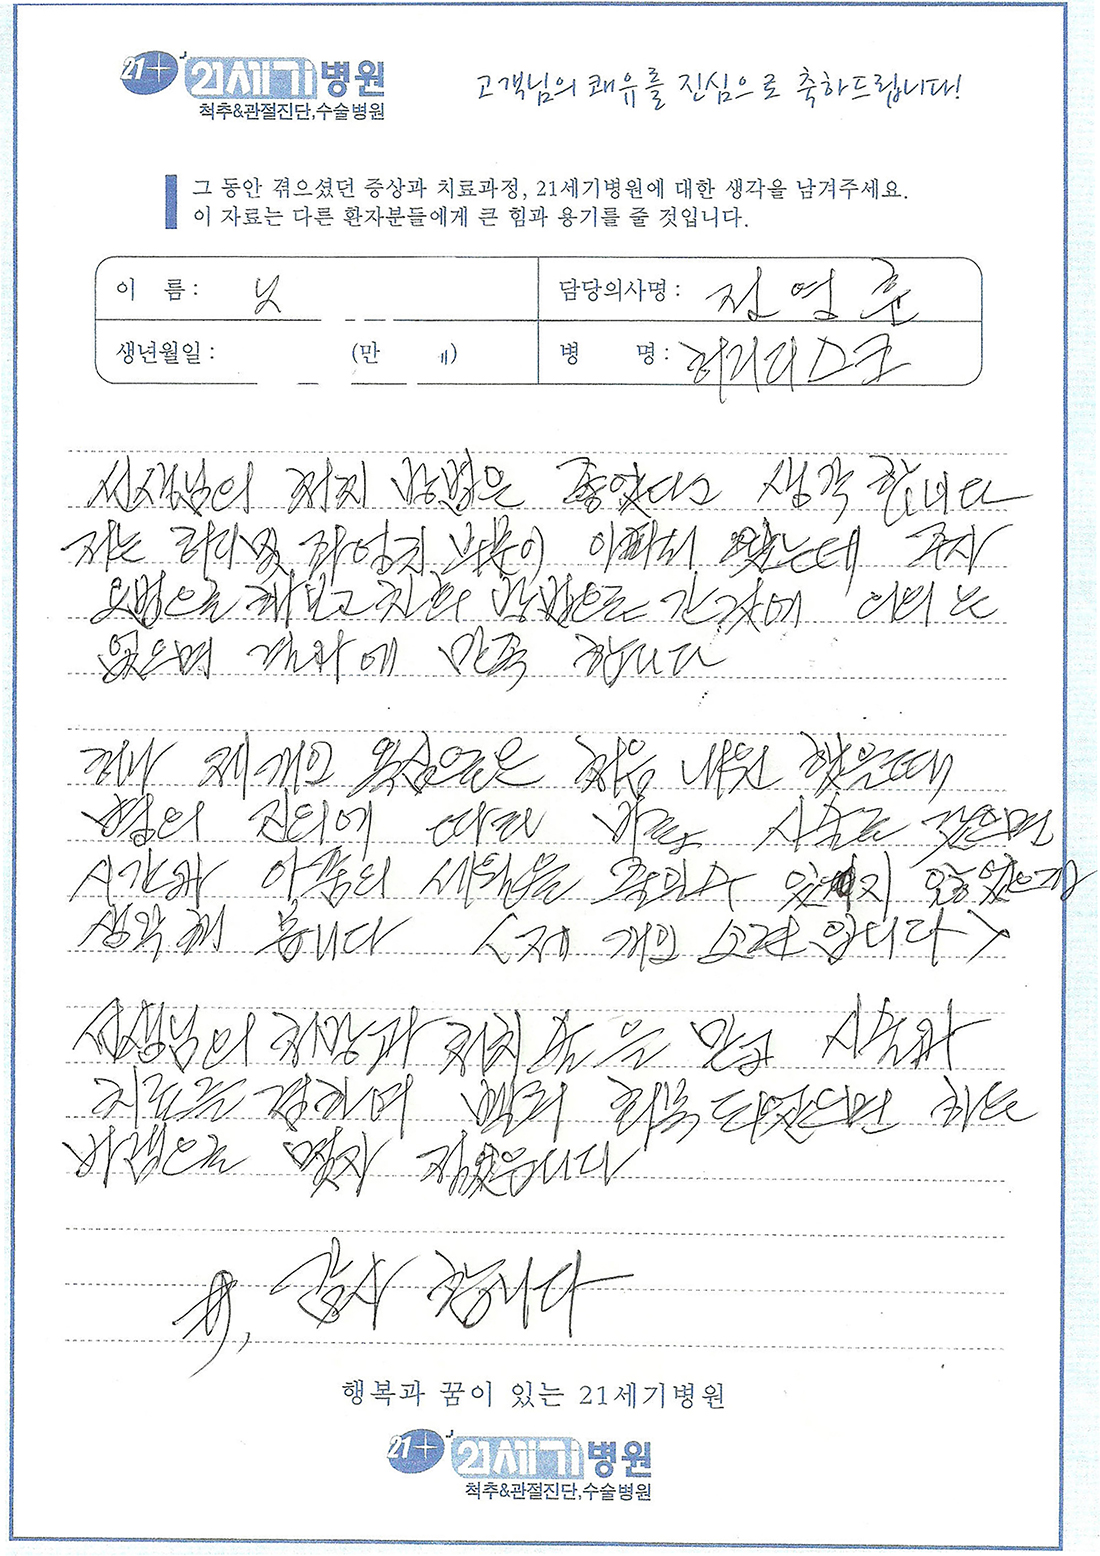 21+ 21세기병원
척추&관절진단,수술병원
고객님의 쾌유를 진심으로 축하드립니다!
그 동안 겪으셨던 증상과 치료과정, 21세기병원에 대한 생각을 남겨주세요.
이 자료는 다른 환자분들에게 큰 힘과 용기를 줄 것입니다.
이 름 :
담당의사명 : 정영훈
생년월일 : (만 )
병 명 : 허리디스크
선생님의 처치 방법은 좋았다고 생각 합니다
저는 허리 및 부분이 아파 왔는데 주사
요법으로 해보고 방법으로 간것에 의의는
없으며 결과에 만족 합니다
허나 제 개인 욕심은 처음 내원 했을때
병의 진의에 따라 바로 시술로 갔으면
시간과 아픔의 세월을 줄일수 있지 않았을까
생각해 봅니다 <제 개인 소견 입니다>
선생님의 처방과 처치 을 믿고 시술과
치료를 정하며 빨리 회복 되었으면 하는
바램으로 몇자 적었습니다
감사 합니다
행복과 꿈이 있는 21세기병원
21+ 21세기병원
척추&관절진단,수술병원